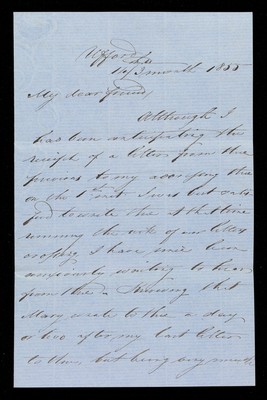 14 3 month 1855
My dear friend,
Although I
has been anticipating the
receipt of a letter from thee
previous to my again
on the 1st inst I was but
to write thee
running the risk of our letters
crossing, I have since been
anxiously waiting to hear
from thee. Knowing that
Mary wrote to thee a day
or two after my last letter
to thee, but being very much